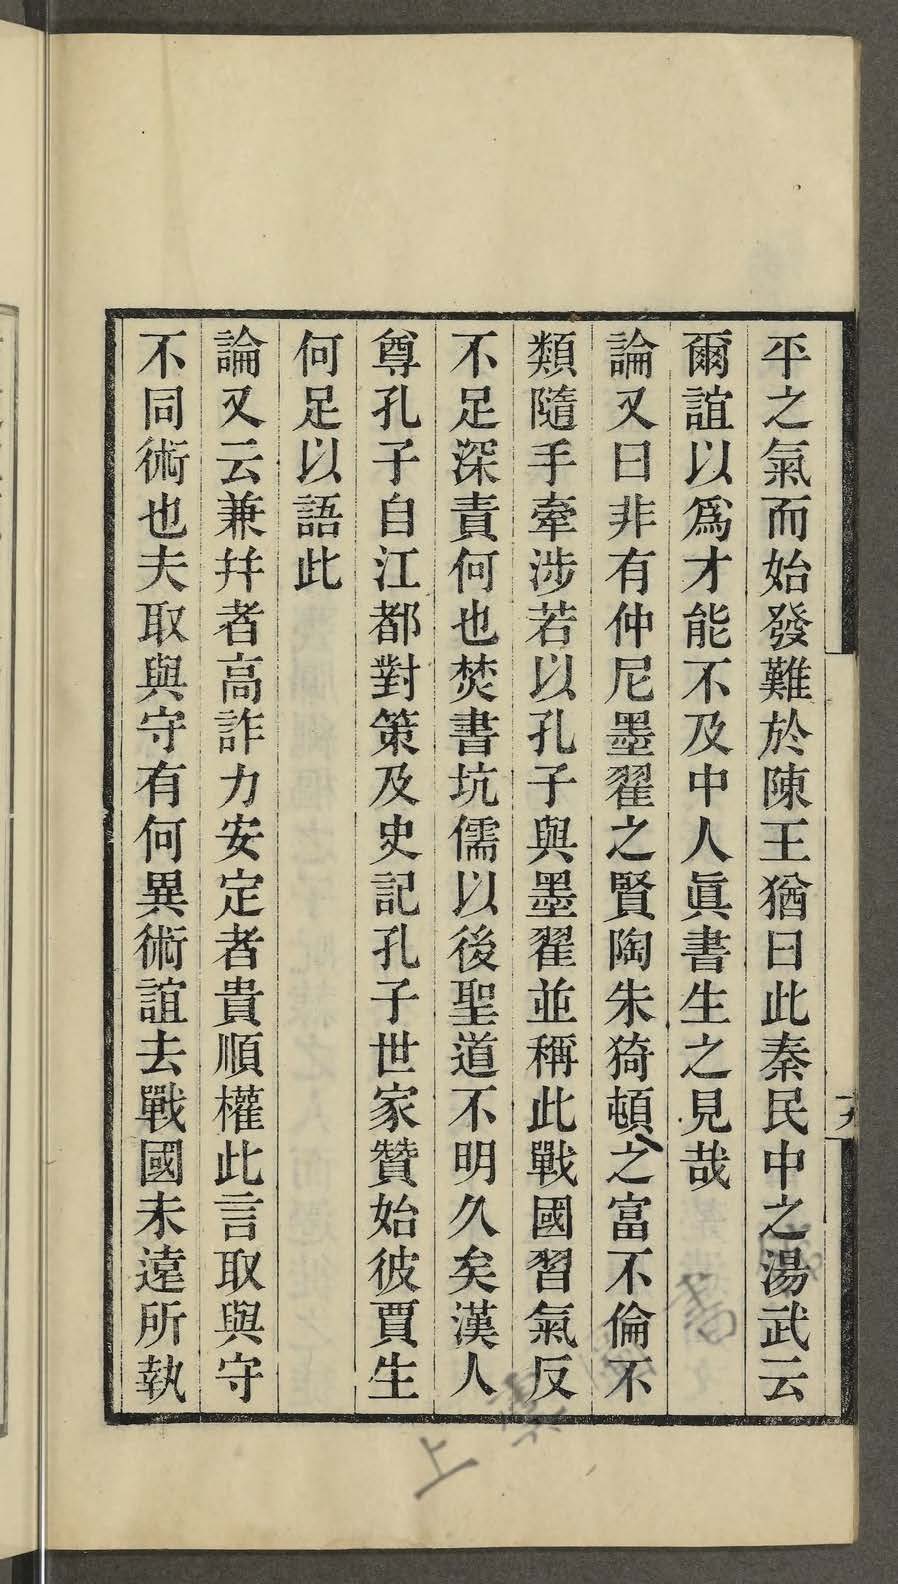 平之氣而始發難於陳王猶曰此秦民中之湯武云
爾誼以爲才能不及中人眞書生之見哉
論又曰非有仲尼墨翟之賢陶朱猗頓之富不倫不
類隨手牽涉若以孔子與墨翟並稱此戰國習氣反
不足深責何也焚書坑儒以後聖道不明久矣漢人
尊孔子自江都對策及史記孔子世家贊始彼賈生
何足以語此
論又云兼幷者高詐力安定者貴順權此言取與守
不同術也夫取與守有何異術誼去戰國未遠所執